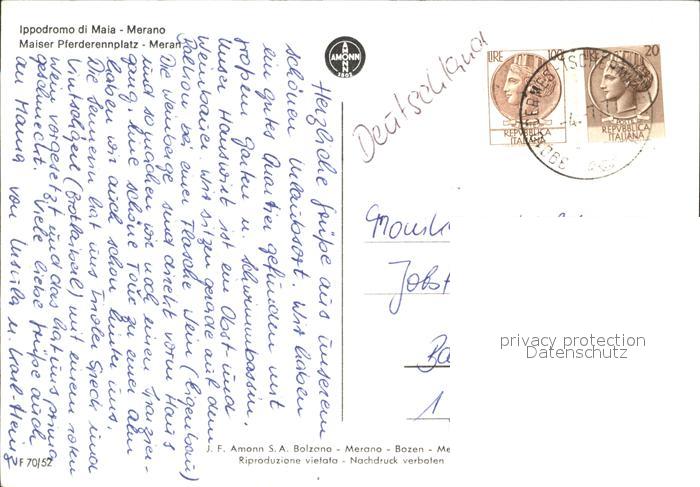 Ippodromo di Maia - Merano
Maiser Pferderennplatz - Meran
Herzliche Grüße aus unserem
schönen Urlaubsort. Wir haben
ein gutes Quartier gefunden mit
großem Garten u. Schwimmbassin.
Unser Hauswirt ist ein Obst- und
Weinbauer. Wir sitzen gerade auf dem
Balkon bei einer Flasche Wein (Eigenbau)
Die Weinberge sind direkt vorm Haus
und so machen wir noch einen Spazier-
gang. Eine schöne Tour zu einer Alm
haben wir auch schon hinter uns.
Die Sennerin hat uns Tiroler Speck und
Vintschgerl (Brotlaiberl) mit einem roten
Wein vorgesetzt und das hat uns prima
geschmeckt. Viele liebe Grüße auch
an Hanna von Ursula u. Karl-Heinz
AMONN
1802
Deutschland
LIRE 100
POSTE
REPVBBLICA
ITALIANA
LIRE 20
POSTE
REPVBBLICA
ITALIANA
39012
Jobst
Ba
1
privacy protection
Datenschutz
J. F. Amonn S.A. Bolzano - Merano - Bozen - Me
Riproduzione vietata - Nachdruck verboten
F 70/52